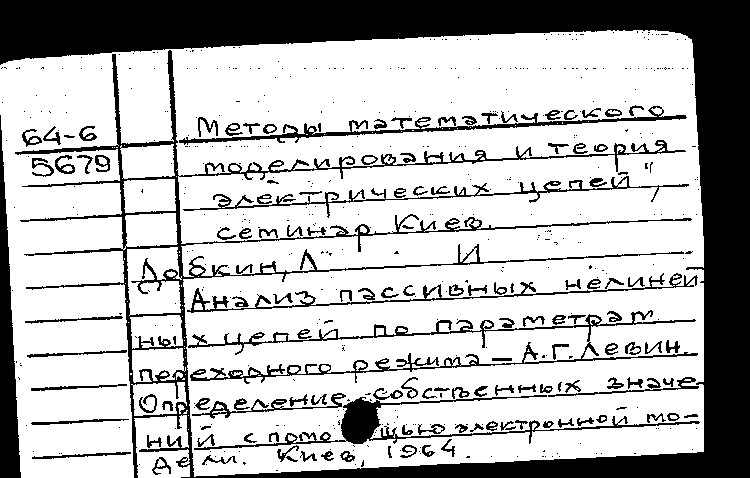 64-6
5679
Методы математического
моделирования и теория
электрических цепей",
семинар Киев.
Добкин, Л И
Анализ пассивных нелиней-
ных цепей по параметрам
переходного режима – А.Г. Левин.
Определение собственных значе-
ний с помощью электронной мо-
дели. Киев, 1964.